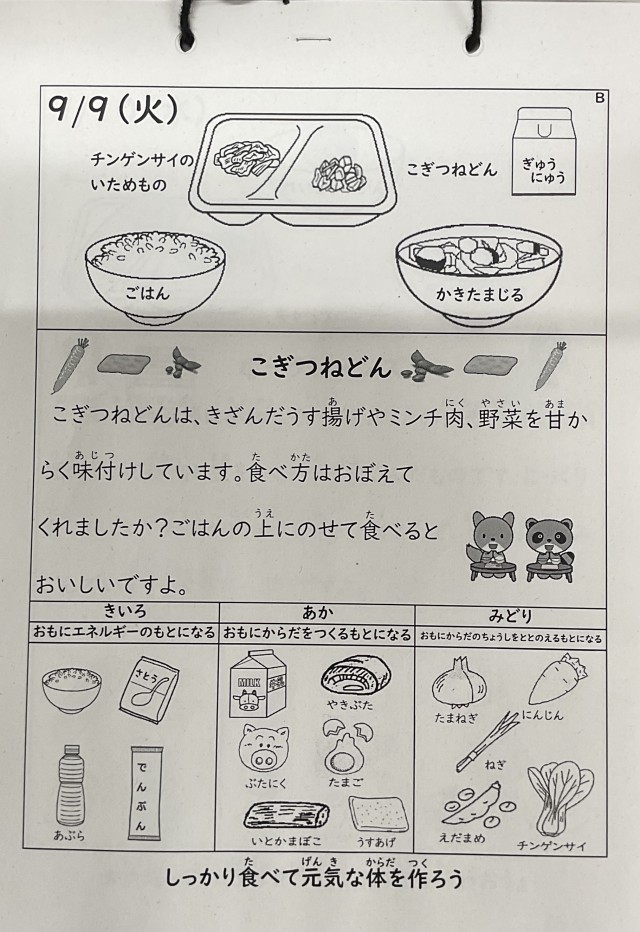 9/9(火)
B
チンゲンサイの
いためもの
こぎつねどん
ぎゅう
にゅう
ごはん
かきたまじる
こぎつねどん
こぎつねどんは、きざんだうす揚げやミンチ肉、野菜を甘か
らく味付けしています。食べ方はおぼえて
くれましたか?ごはんの上にのせて食べると
おいしいですよ。
きいろ
おもにエネルギーのもとになる
あか
おもにからだをつくるもとになる
みどり
おもにからだのちょうしをととのえるもとになる
さとう
あぶら
でんぷん
MILK
やきぶた
ぶたにく
たまご
いとかまぼこ
うすあげ
たまねぎ
にんじん
ねぎ
えだまめ
チンゲンサイ
しっかり食べて元気な体を作ろう